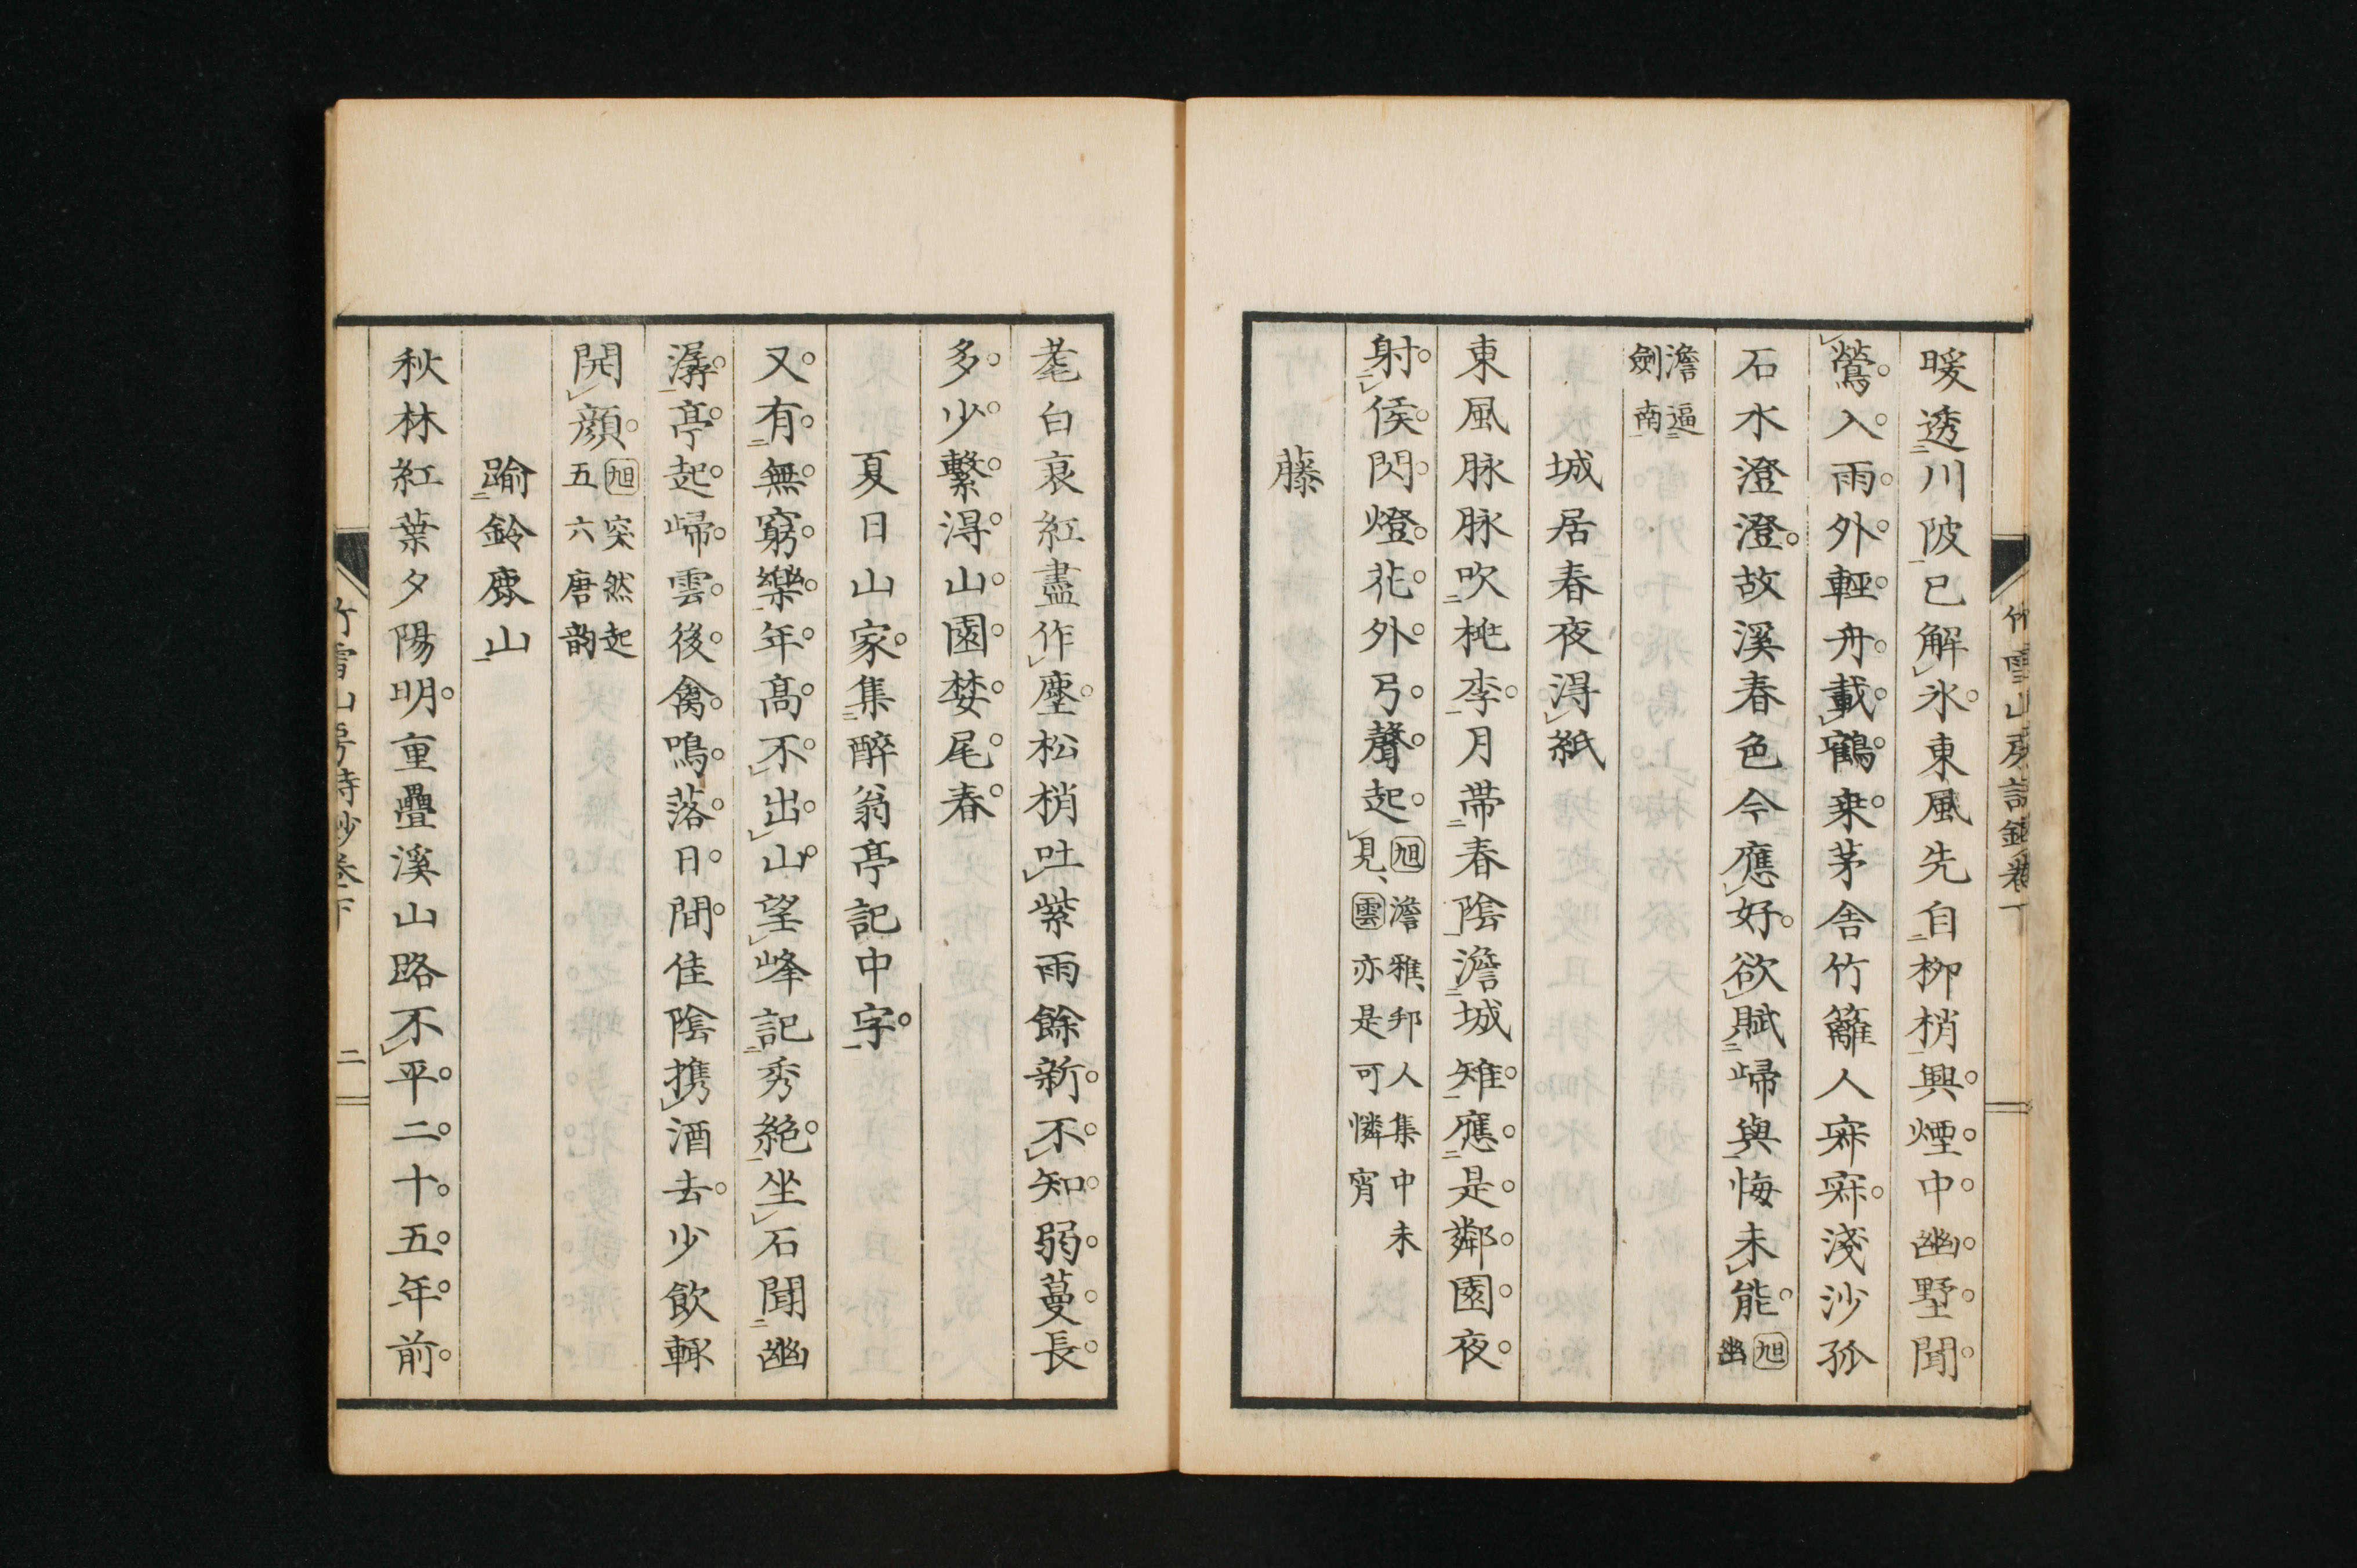 竹雪山房詩鈔卷下
暖透川陂已解氷東風先自柳梢興煙中幽墅聞
鶯入雨外輕舟載鶴乗茅舎竹籬人寂寂淺沙孤
石水澄澄故溪春色今應好欲賦歸與悔未能旭幽
澹逼
劍南
城居春夜得紙
東風脉脉吹桃李月帶春陰澹城雉應是鄰園夜
射侯閃燈花外弓聲起旭澹雅邦人集中未
見雲亦是可憐宵
藤
耄白衰紅盡作塵松梢吐紫雨餘新不知弱蔓長
多少繫得山園婪尾春
夏日山家集醉翁亭記中字
又有無窮樂年髙不出山望峰記秀絶坐石聞幽
潺亭起歸雲後禽鳴落日間佳陰携酒去少飲輙
開顔旭突然起
五六唐韵
踰鈴鹿山
秋林紅葉夕陽明重疊溪山路不平二十五年前
竹雪山房詩鈔卷下
二